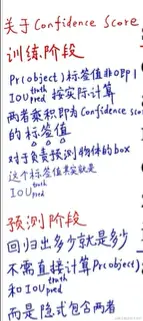 关于Confidence Score
训练阶段
Pr(object)标签值非0即1
IOU truth pred 按实际计算
两者乘积即为Confidence Score
的标签值
对于负责预测物体的box
这个标签值其实就是
IOU truth pred
预测阶段
回归出多少就是多少
不需直接计算Pr(object)
和IOU truth pred
而是隐式包含两者